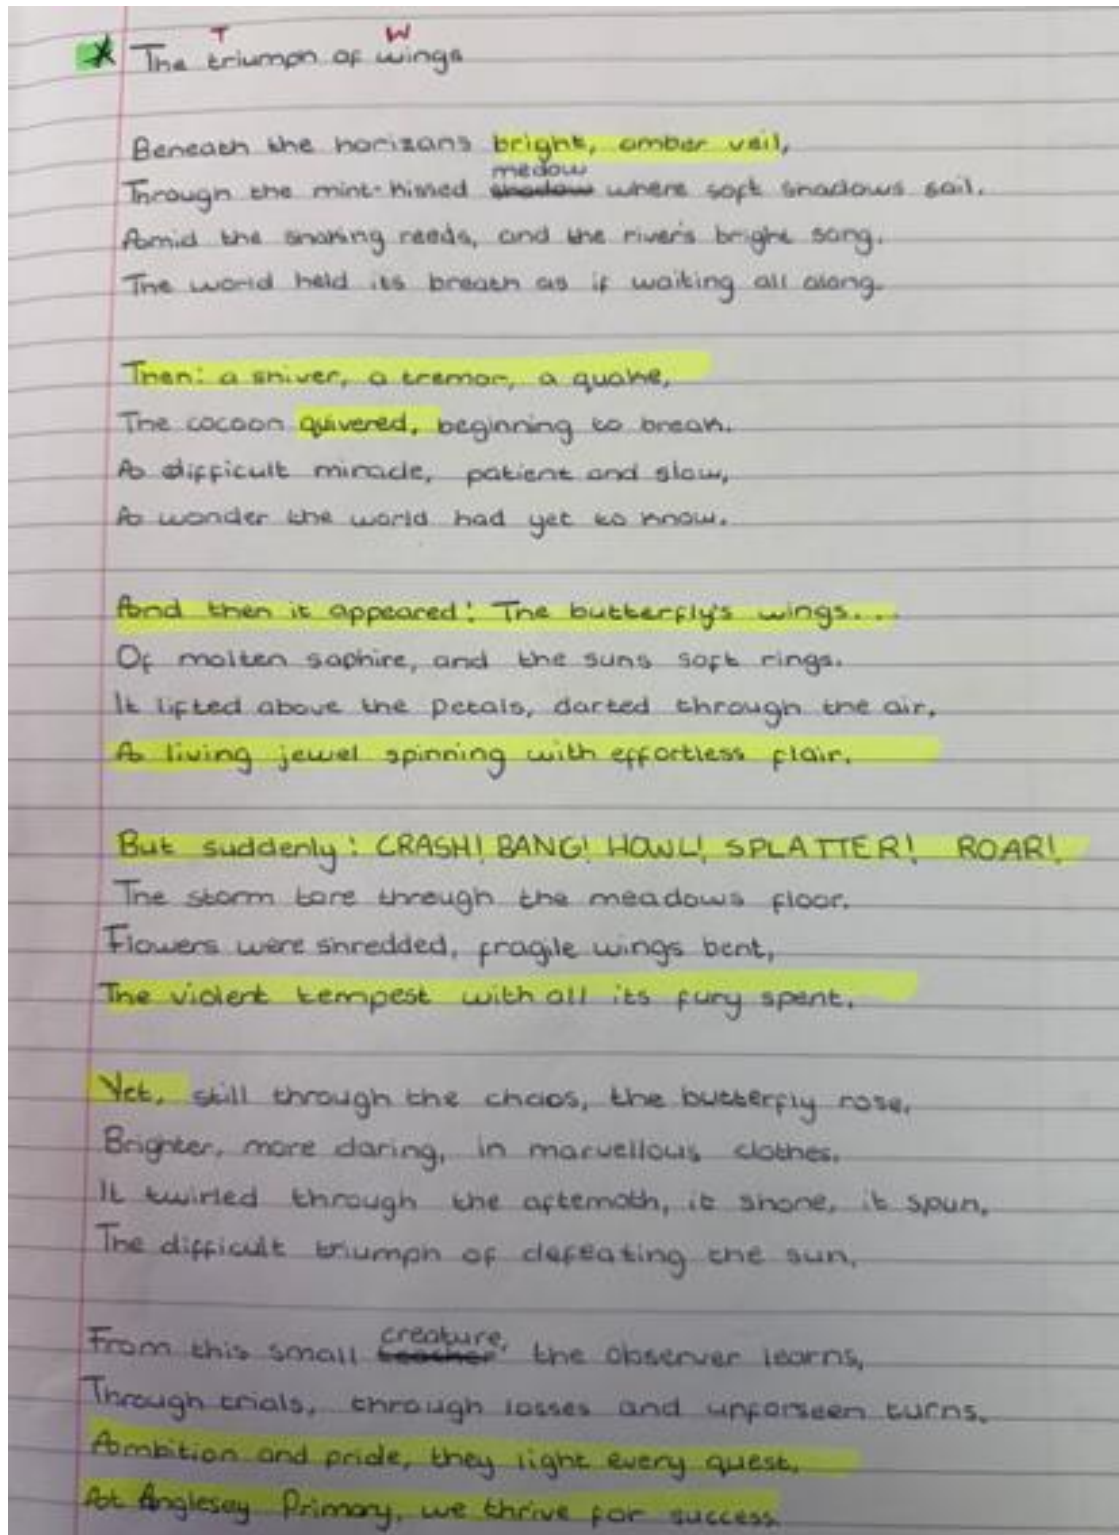 The triumph of wings
T W
Beneath the horizans bright, amber veil,
Through the mint-kissed medow where soft shadows sail.
Amid the shaking reeds, and the rivers bright song.
The world held its breath as if waiting all along.
Then: a shiver, a tremor, a quake,
The cocoon quivered, beginning to break.
A difficult miracle, patient and slow,
A wonder the world had yet to know.
And then it appeared! The butterfly's wings...
Of molten saphire, and the suns soft rings.
It lifted above the petals, darted through the air,
A living jewel spinning with effortless flair.
But suddenly: CRASH! BANG! HOWL! SPLATTER! ROAR!
The storm tore through the meadows floor.
Flowers were shredded, fragile wings bent,
The violent tempest with all its fury spent.
Yet, still through the chaos, the butterfly rose,
Brighter, more daring, in marvellous clothes.
It twirled through the aftemath, it shone, it spun,
The difficult triumph of defeating the sun.
From this small creature, the observer learns,
Through trials, through losses and unforseen turns.
Ambition and pride, they light every quest,
At Anglesey Primary, we thrive for success.